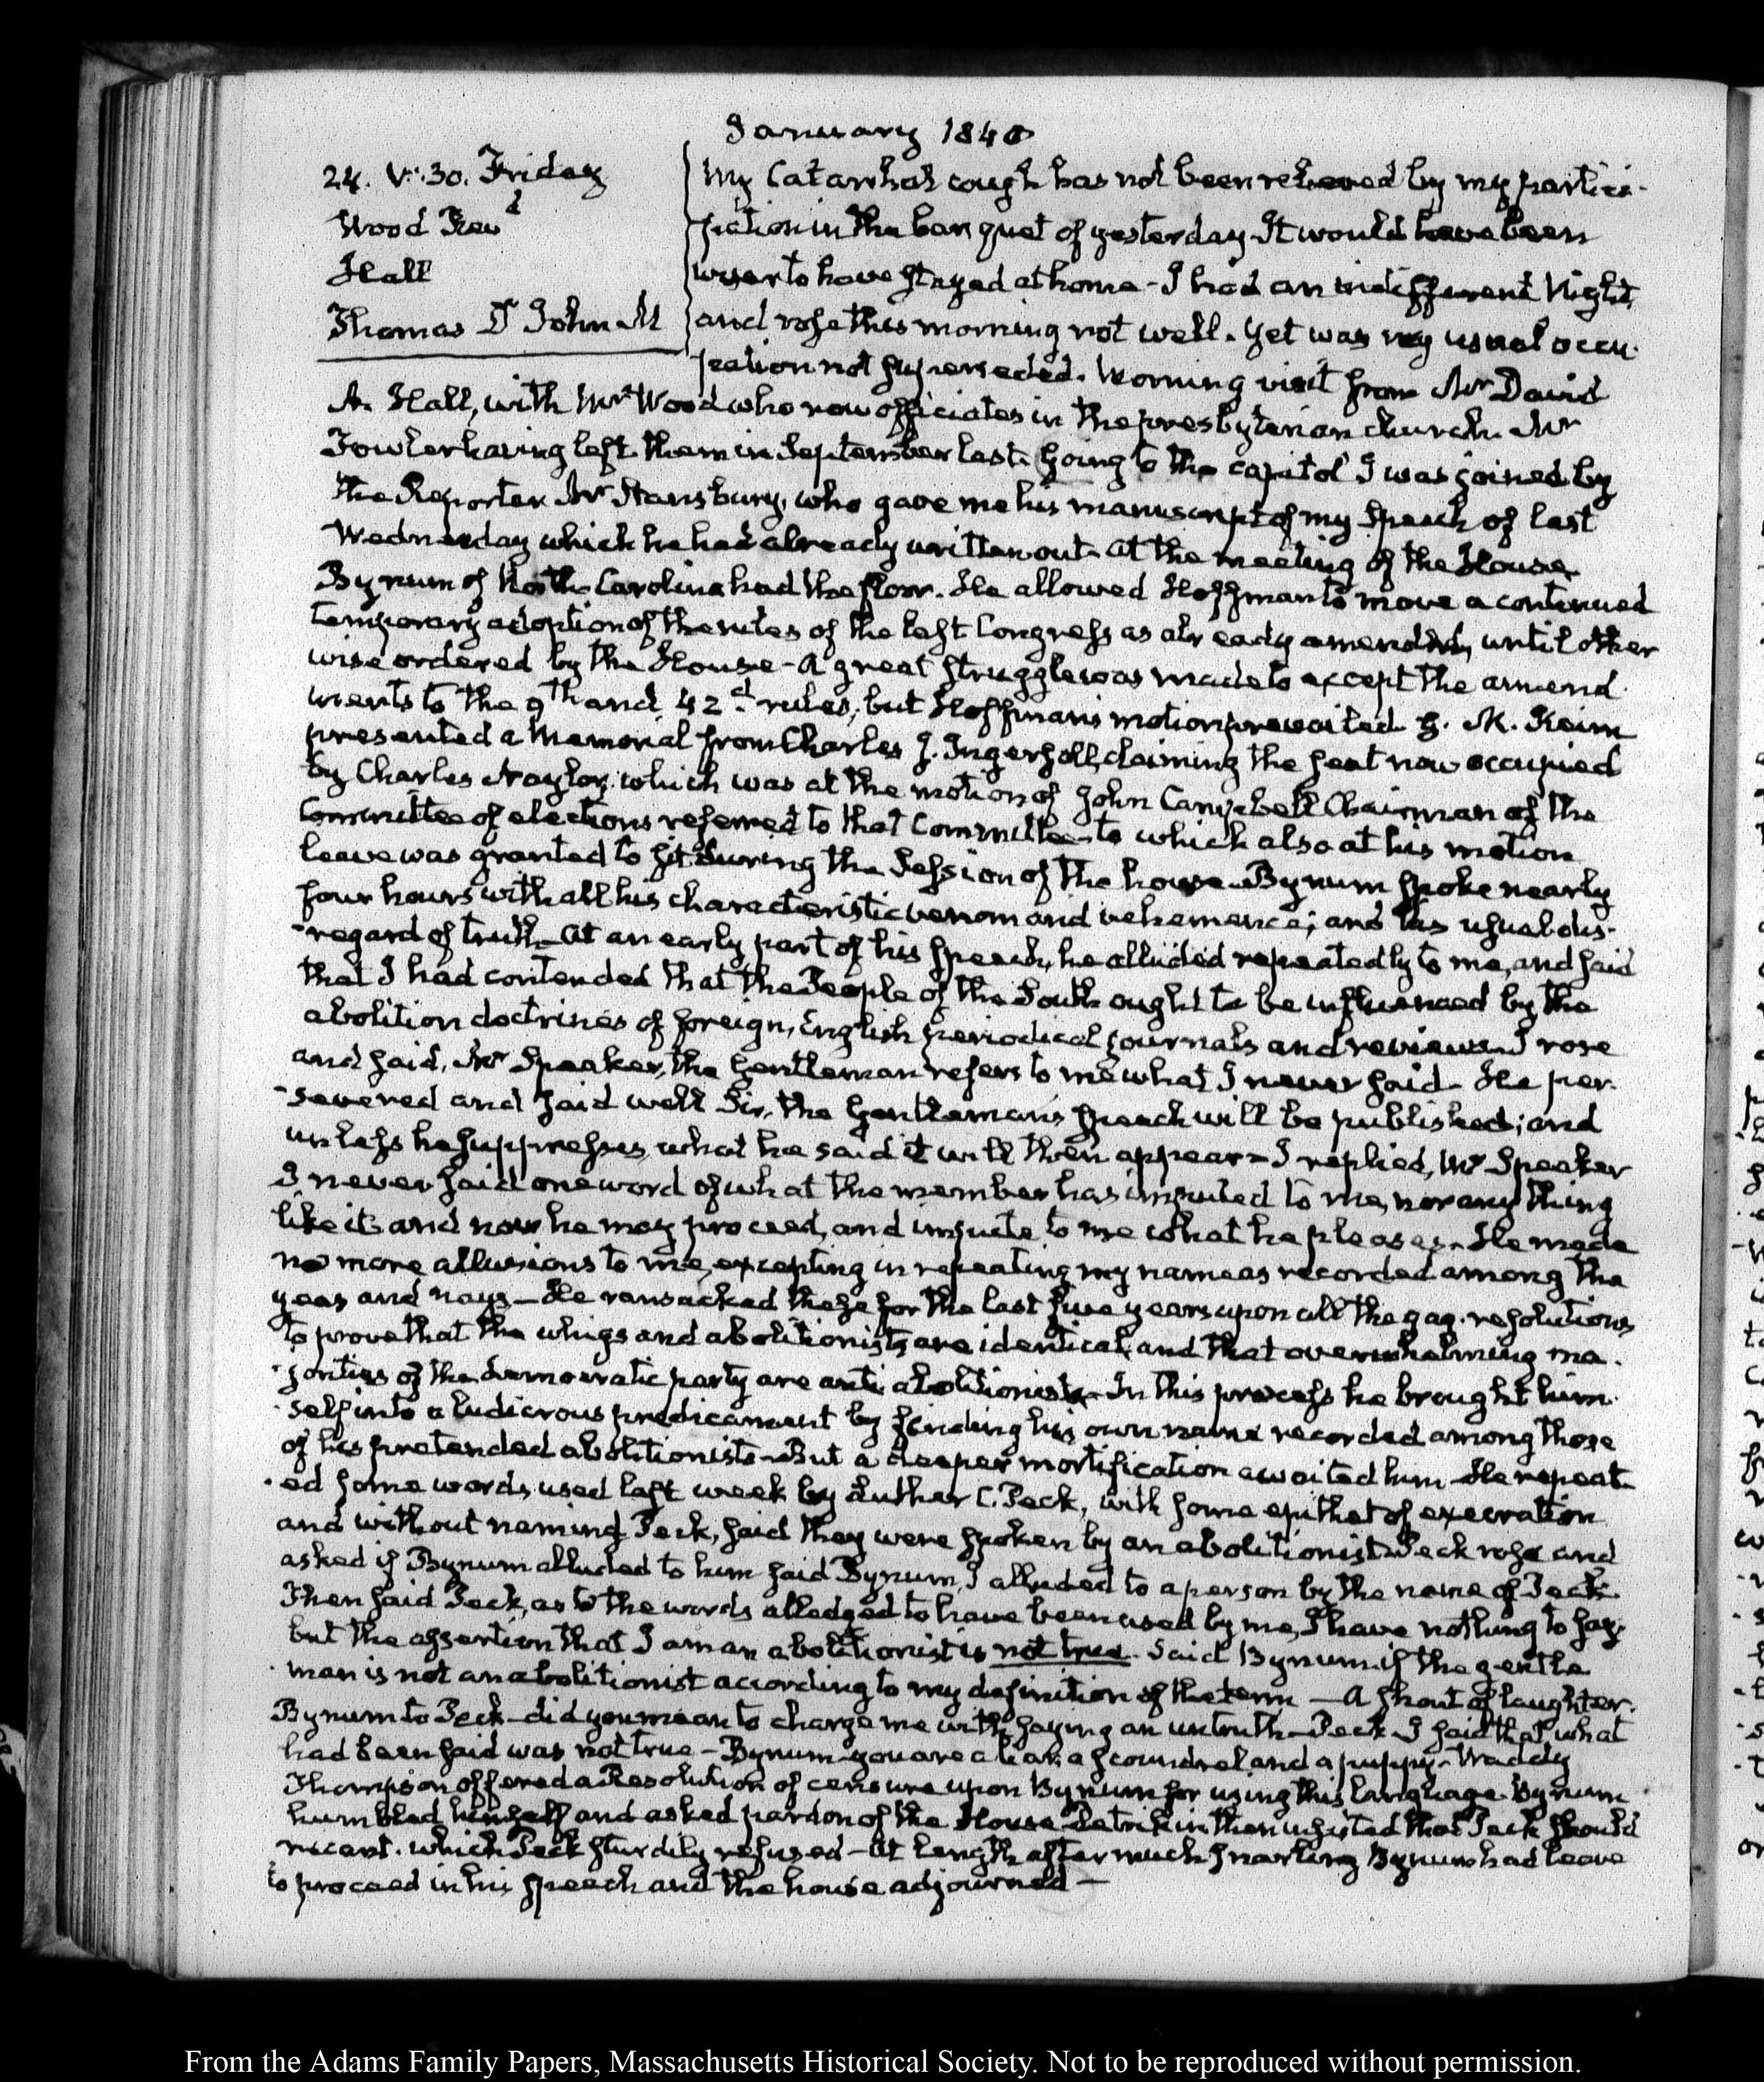 January 1840
24. V:30. Friday
Wood Revd
Hall
Thomas Dr John M
My Catarrhal cough has not been relieved by my partici-
pation in the banquet of yesterday It would have been
wiser to have stayed at home - I had an indifferent Night,
and rose this morning not well. Yet was my usual occu-
pation not superseded. Morning visit from Mr David
A. Hall, with Mr Wood who now officiates in the presbyterian church. Mr
Fowler having left them in September last. Going to the capitol I was joined by
the Reporter Mr Stansbury, who gave me his manuscript of my Speech of last
Wednesday which he had already written out. At the meeting of the House
Bynum of North Carolina had the floor. He allowed Hoffman to move a continued
temporary adoption of the rules of the last Congress as already amended, until other
wise ordered by the House - A great struggle was made to except the amend-
ments to the 9th and 42d rules; but Hoffman's motion prevailed G. M. Keim
presented a Memorial from Charles J. Ingersoll, claiming the seat now occupied
by Charles Naylor, which was at the motion of John Campbell Chairman of the
Committee of elections referred to that Committee - to which also at his motion
leave was granted to sit during the Session of the house - Bynum spoke nearly
four hours with all his characteristic venom and vehemence; and his usual dis-
-regard of truth - At an early part of his speech, he alluded repeatedly to me, and said
that I had contended that the People of the South ought to be influenced by the
abolition doctrines of foreign, English periodical journals and reviews - I rose
and said, Mr Speaker, the Gentleman refers to me what I never said - He per-
-severed and said well Sir, the Gentleman's speech will be published; and
unless he suppresses what he said it will then appear - I replied, Mr Speaker
I never said one word of what the member has imputed to me, nor any thing
like it - and now he may proceed, and impute to me what he pleases. He made
no more allusions to me, excepting in repeating my name as recorded among the
yeas and nays - He ransacked these for the last five years upon all the gag-resolutions
to prove that the whigs and abolitionists are identical, and that overwhelming ma-
-jorities of the democratic party are anti abolitionists - In this process he brought him-
-self into a ludicrous predicament by finding his own name recorded among those
of his pretended abolitionists - But a deeper mortification awaited him - He repeat-
-ed some words, used last week by Luther C. Peck, with some epithet of execration
and without naming Peck, said they were spoken by an abolitionist - Peck rose and
asked if Bynum alluded to him said Bynum, I alluded to a person by the name of Peck
Then said Peck, as to the words alledged to have been used by me, I have nothing to say;
but the assertion that I am an abolitionist is not true. Said Bynum if the gentle
-man is not an abolitionist according to my definition of the term - A shout of laughter.
Bynum to Peck - did you mean to charge me with saying an untruth - Peck I said that what
had been said was not true - Bynum - you are a liar, a scoundrel and a puppy - Waddy
Thompson offered a Resolution of censure upon Bynum for using this language. Bynum
humbled himself and asked pardon of the House - Petrikin then insisted that Peck should
recant. which Peck sturdily refused - At length after much snarling Bynum had leave
to proceed in his speech and the house adjourned -
From the Adams Family Papers, Massachusetts Historical Society. Not to be reproduced without permission.